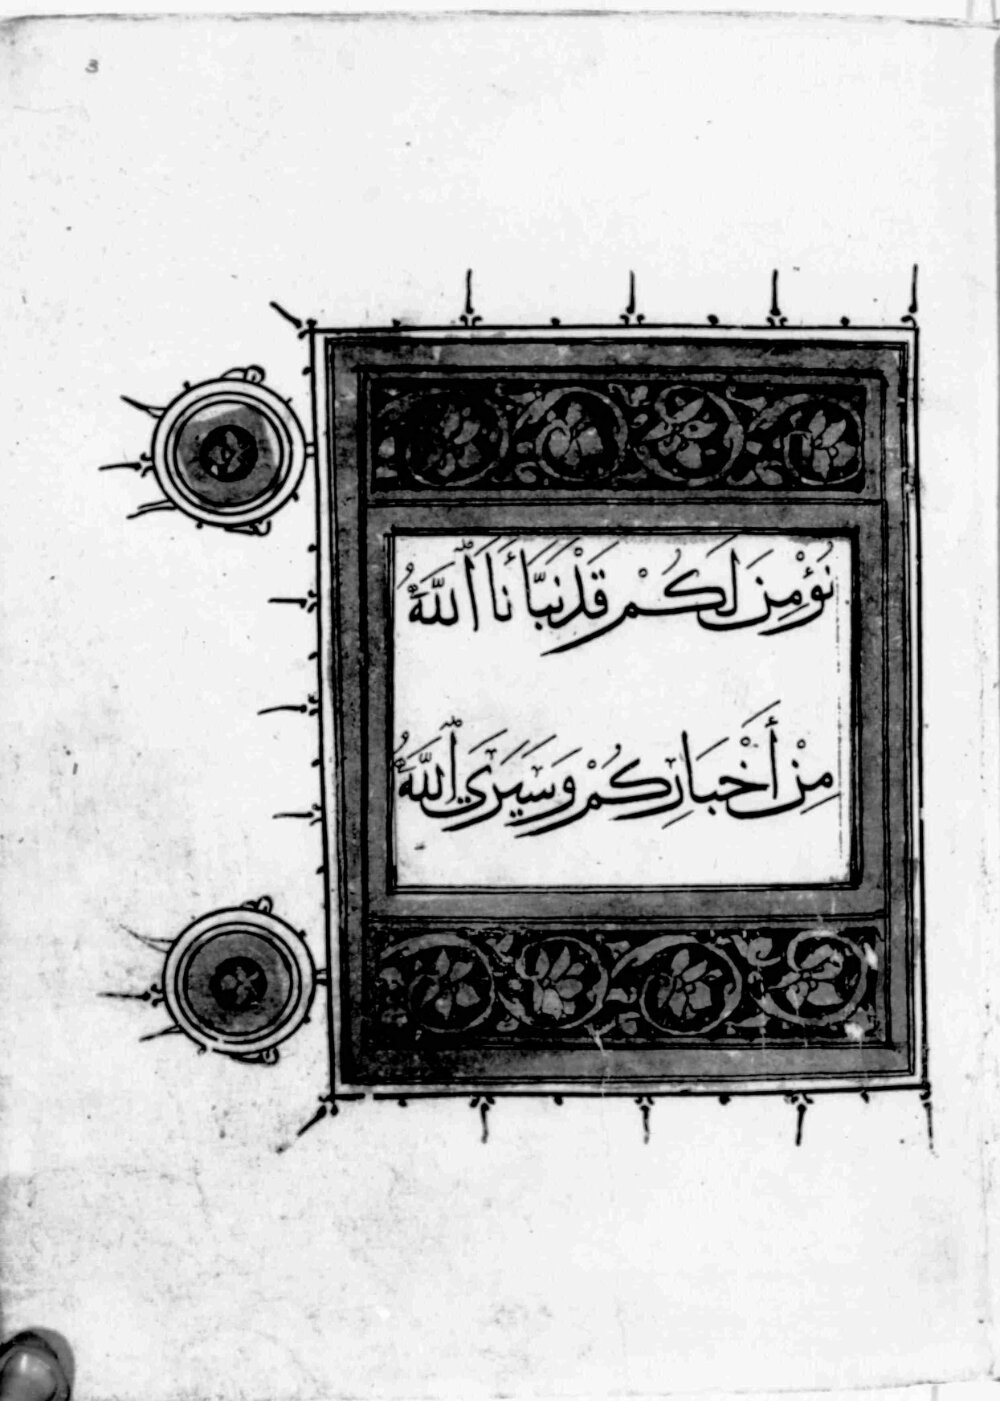 3
نُؤْمِنَ لَكُمْ قَدْ نَبَّأَنَا اَللَّهُ
مِنْ أَخْبَارِكُمْ وَسَيَرَى اَللَّهُ